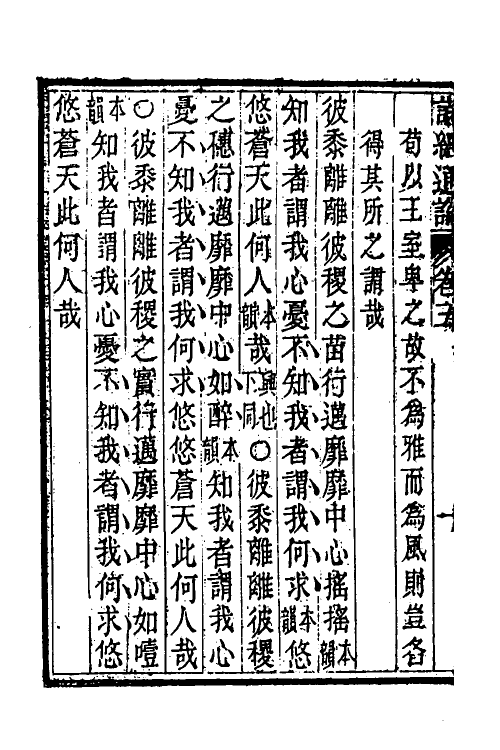 詩經通論 卷五
苟以王室卑之故不為雅而為風則豈各
得其所之謂哉
彼黍離離彼稷之苗行邁靡靡中心搖搖本韻
知我者謂我心憂不知我者謂我何求本韻悠
悠蒼天此何人本韻哉興也下同○彼黍離離彼稷
之穗行邁靡靡中心如醉本韻知我者謂我心
憂不知我者謂我何求悠悠蒼天此何人哉
○彼黍離離彼稷之實行邁靡靡中心如噎
本韻知我者謂我心憂不知我者謂我何求悠
悠蒼天此何人哉